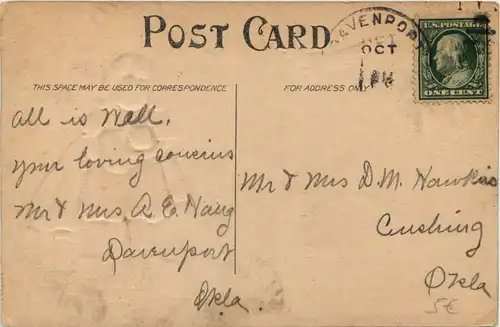 POST CARD
DAVENPORT
OCT
PM
U.S. POSTAGE
ONE CENT
THIS SPACE MAY BE USED FOR CORRESPONDENCE
FOR ADDRESS ONLY
all is Well.
your loving cousins
Mr & Mrs A. E. Haug
Davenport
Okla.
Mr & Mrs D. M. Hawkins
Cushing
Okla
5€